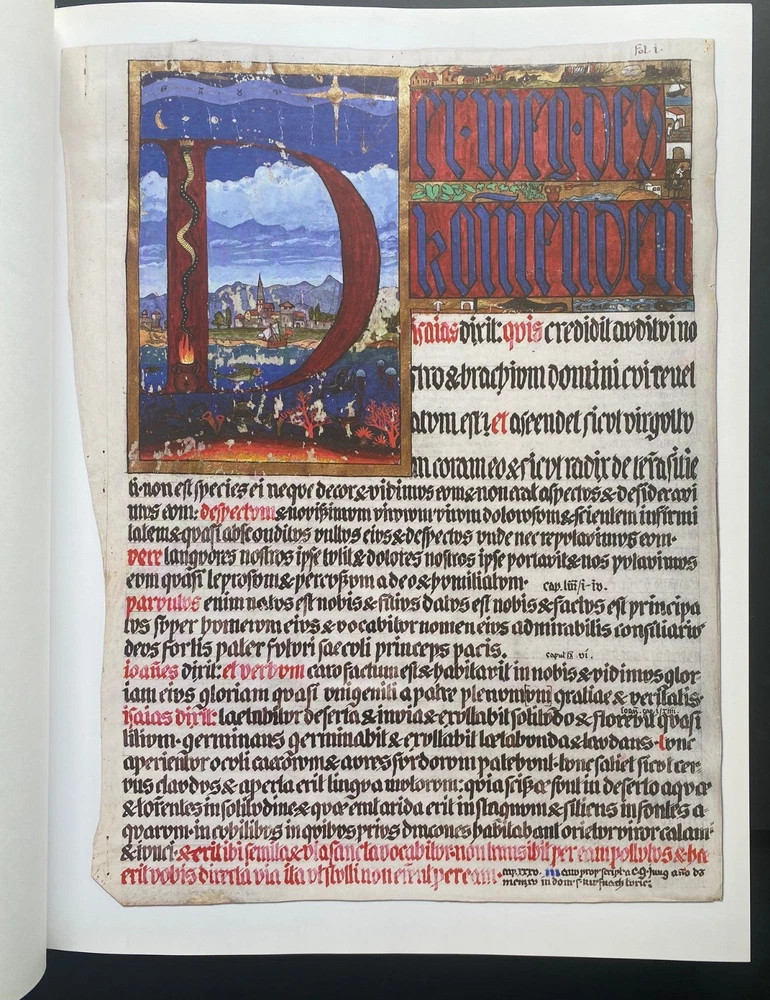 fol. i.
Der weg des
komenden
isaias dixit: quis credidit auditui no
stro & brachium domini cui revel
atum est? et ascendet sicut virgultu
m coram eo & sicut radix de terra sitie
ti · non est species ei neque decor & vidimus eum & non erat aspectus & desideravi
mus eum: despectum & novissimum virorum virum dolorosum & scientem infirmi
tatem & quasi absconditus vultus eius & despectus unde nec reputavimus eum ·
vere languores nostros ipse tulit & dolores nostros ipse portavit & nos putavimus
eum quasi leprosum & percussum a deo & humiliatum · cap. liii / i-iv.
parvulus enim natus est nobis & filius datus est nobis & factus est principa
tus super humerum eius & vocabitur nomen eius admirabilis consiliarius
deus fortis pater futuri saeculi princeps pacis. caput ix vi.
ioanes dixit: et verbum caro factum est & habitavit in nobis & vidimus glor-
iam eius gloriam quasi unigeniti a patre plenum gratiae & veritatis ·
ioan. cap. i / xiiii.
isaias dixit: laetabitur deserta & invia & exultabit solitudo & florebit quasi
lilium · germinans germinabit & exultabit laetabunda & laudans · tunc
aperientur oculi caecorum & aures surdorum patebunt · tunc saliet sicut cer-
vus claudus & aperta erit lingua mutorum: quia scissae sunt in deserto aquae
& torrentes in solitudine & quae erat arida erit in stagnum & sitiens in fontes a-
quarum · in cubilibus in quibus prius dracones habitabant orietur viror calami
& iunci · & erit ibi semita & via sancta vocabitur · non transibit per eam pollutus & haec
erit vobis directa via ita ut stulti non errent per eam · cap. xxxv. manu propr script a C G Jung año dō
mcmxv in dom